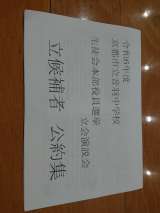 令和6年度
京都市立音羽中学校
生徒会本部役員選挙
立会演説会
立候補者 公約集